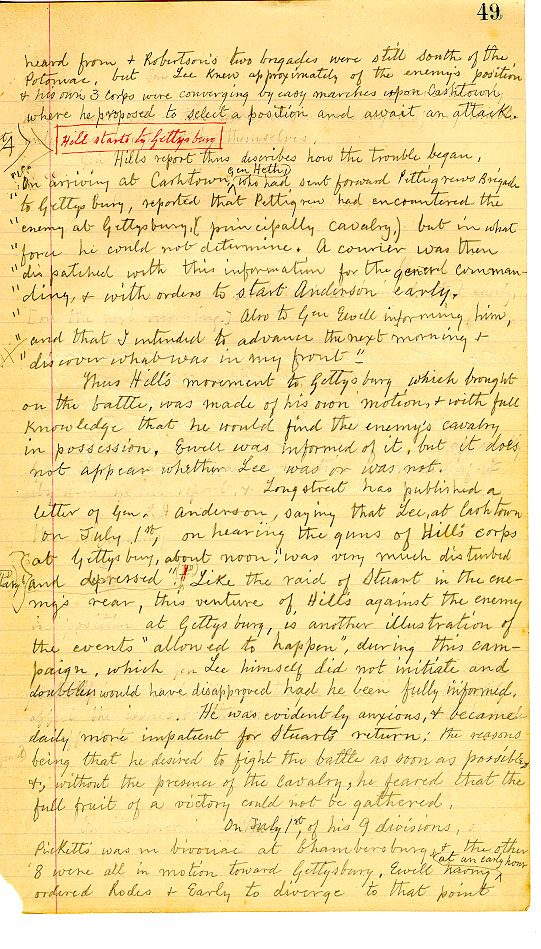 49
heard from & Robertson's two brigades were still south of the
Potomac, but Lee knew approximately of the enemy's position
& his own 3 corps were converging by easy marches upon Cashtown
where he proposed to select a position and await an attack.
Hill starts to Gettysburg
Hills report thus discribes how the trouble began,
" On arriving at Cashtown, Gen Heth, who had sent forward Pettigrews Brigade
" to Gettysbury, reported that Pettigrew had encountered the
" enemy at Gettysburg, (principally cavalry,) but in what
" force he could not determine. A courier was then
" dispatched with this information for the general comman-
" ding, & with orders to start Anderson early.
" Also to Gen Ewell informing him,
" and that I intended to advance the next morning &
" discover what was in my front"
Thus Hill's movement to Gettysburg which brought
on the battle, was made of his own motion, & with full
knowledge that he would find the enemy's cavalry
in possession. Ewell was informed of it, but it does
not appear whether Lee was or was not.
Longstreet has published a
letter of Gen. Anderson, saying that Lee, at Cashtown
on July 1st, on hearing the guns of Hill's corps
at Gettysburg, about noon, "was very much disturbed
and depressed". Like the raid of Stuart in the ene-
my's rear, this venture of Hill's against the enemy
at Gettysburg, is another illustration of
the events "allowed to happen", during this cam-
paign, which Lee himself did not initiate and
doubtless would have disapproved had he been fully informed.
He was evidently anxious, & became
daily more impatient for Stuart's return; the reasons
being that he desired to fight the battle as soon as possible,
&, without the presence of the cavalry, he feared that the
full fruit of a victory could not be gathered.
On July 1st, of his 9 divisions,
Picketts was in bivouac at Chambersburg & the other
8 were all in motion toward Gettysburg, Ewell having at an early hour
ordered Rodes & Early to diverge to that point